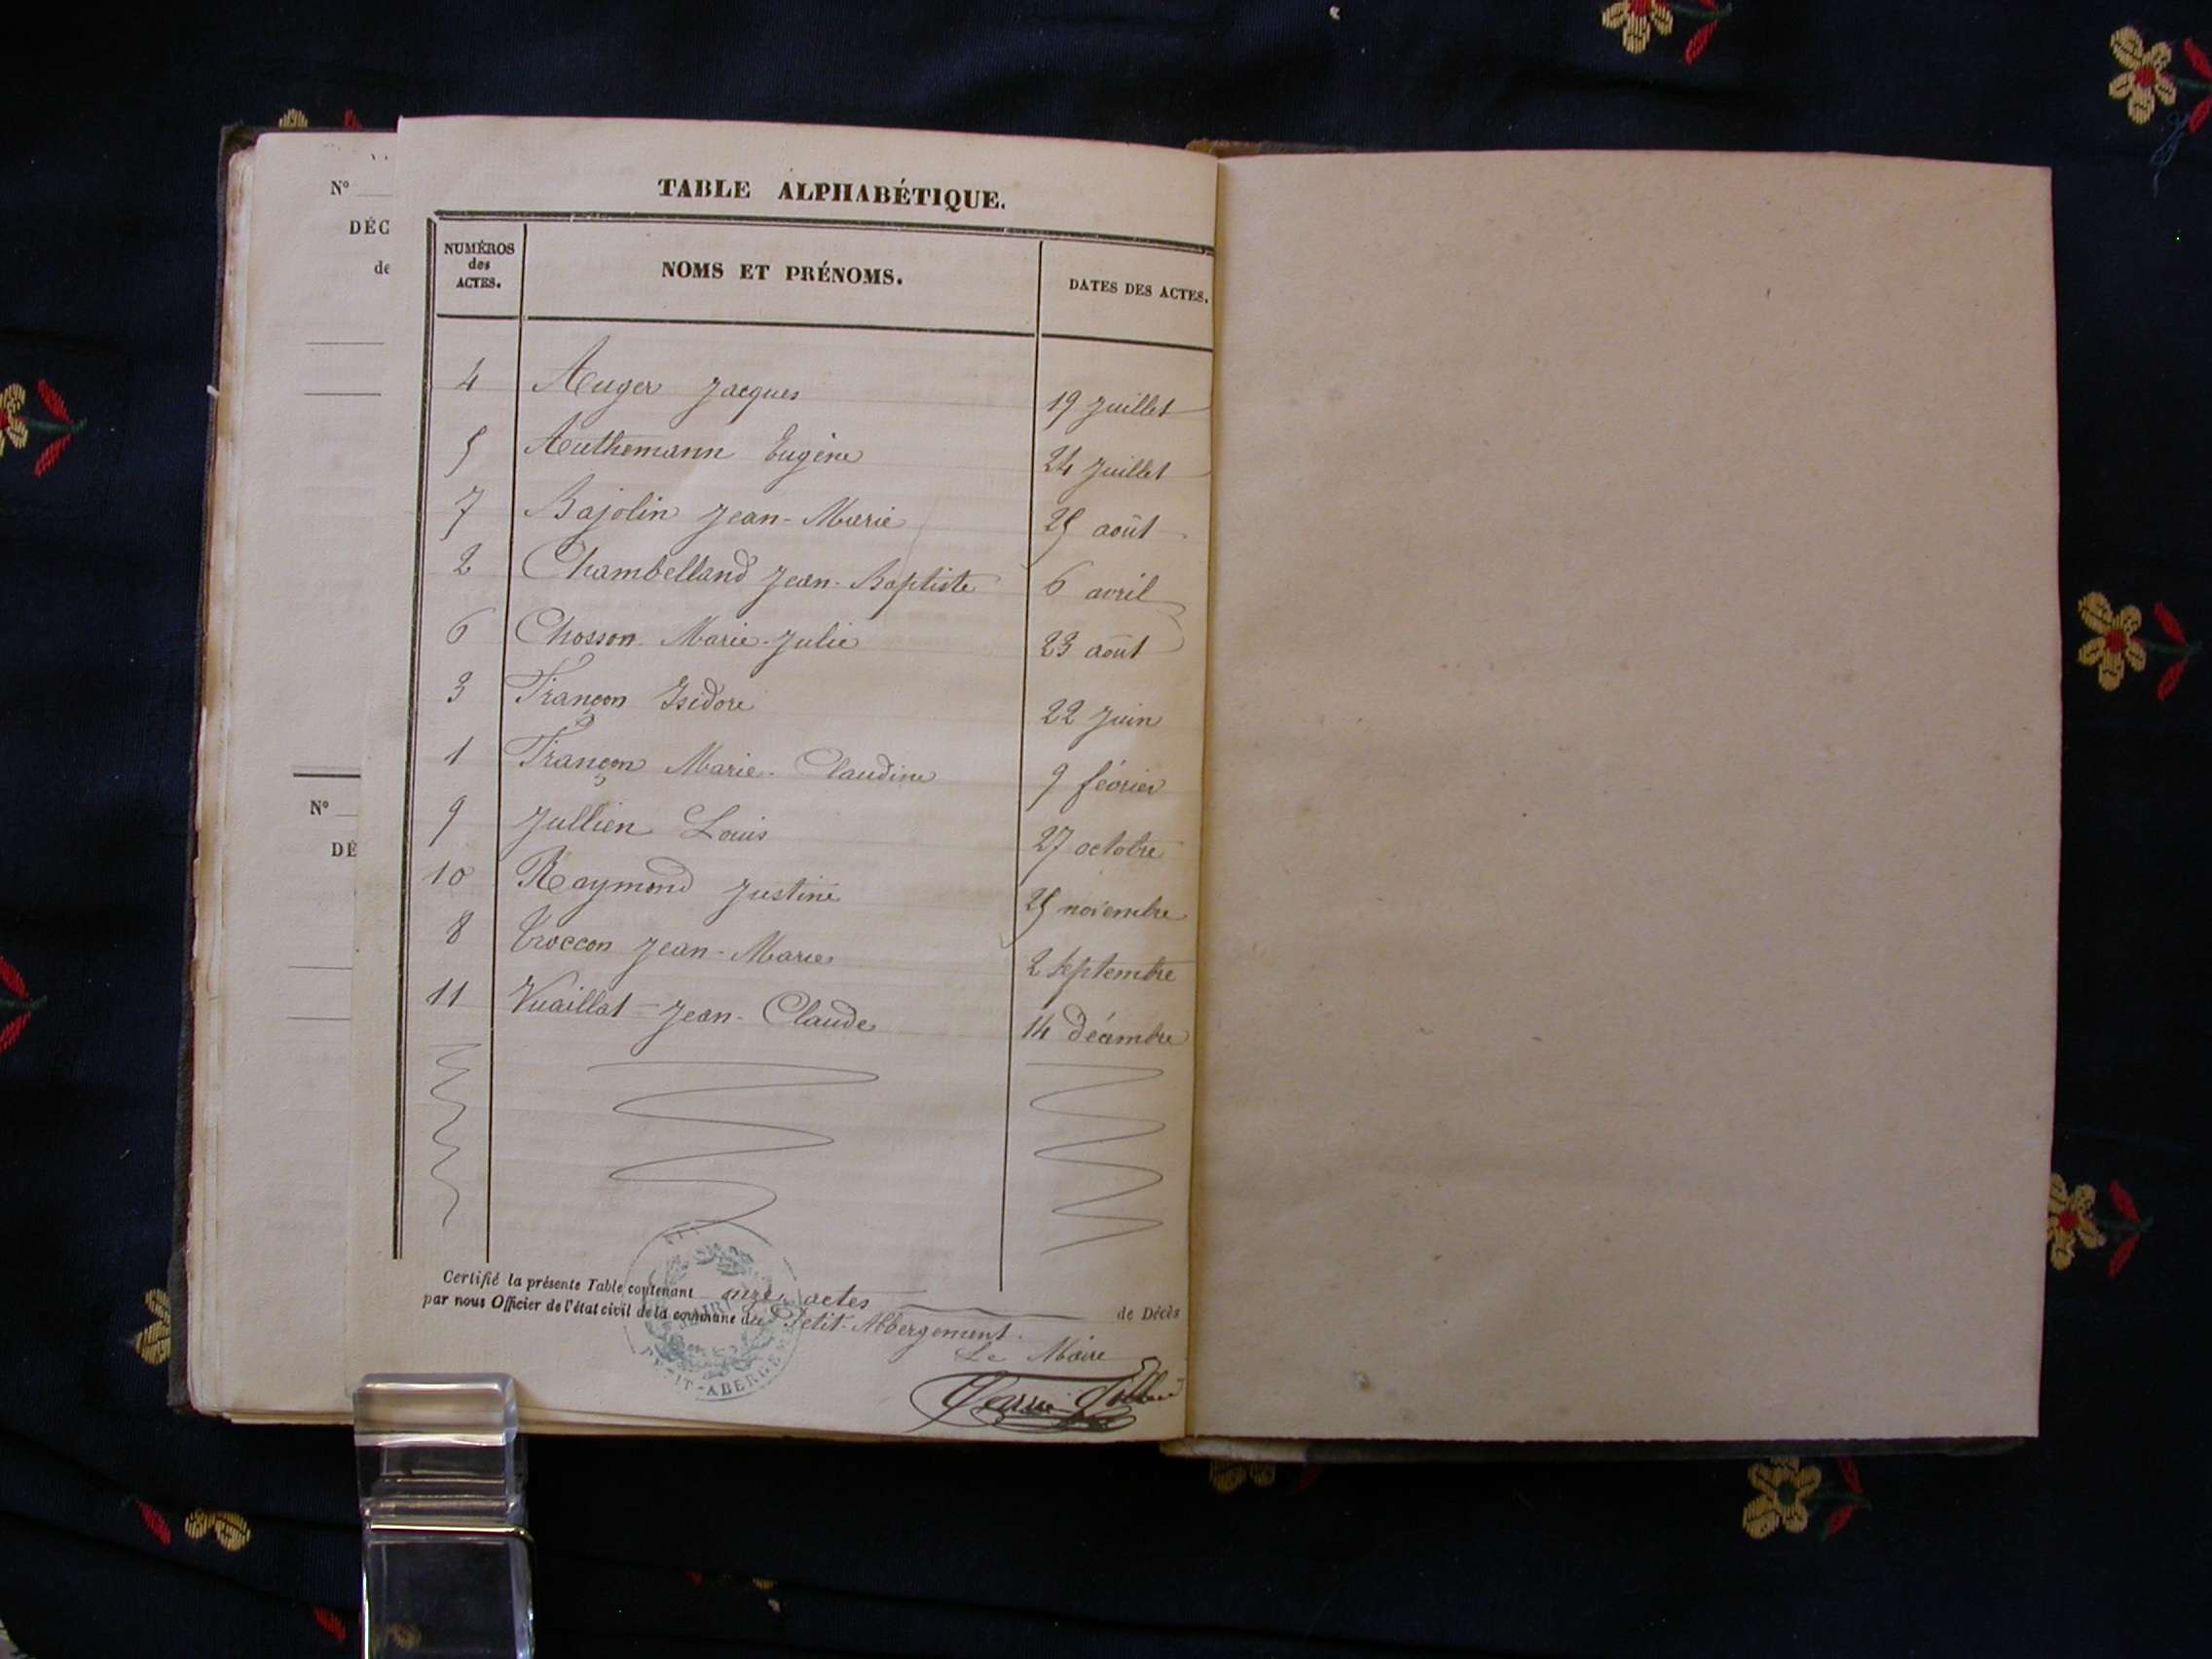 N°
DÉC
de
N°
DÉ
TABLE ALPHABÉTIQUE.
NUMÉROS des ACTES.
NOMS ET PRÉNOMS.
DATES DES ACTES.
4 Auger Jacques 19 juillet
5 Authemann Eugène 24 juillet
7 Bajolin Jean-Marie 25 août
2 Chambelland Jean-Baptiste 6 avril
6 Chosson Marie-Julie 23 août
3 Françon Isidore 22 juin
1 Françon Marie-Claudine 9 février
9 Jullien Louis 27 octobre
10 Raymond Justine 25 novembre
8 Troccon Jean-Marie 2 septembre
11 Vuaillat Jean-Claude 14 décembre
Certifié la présente Table contenant onze actes de Décès
par nous Officier de l'état civil de la commune du Petit-Abbergement.
Le Maire
MAIRIE
PETIT-ABERGEMENT